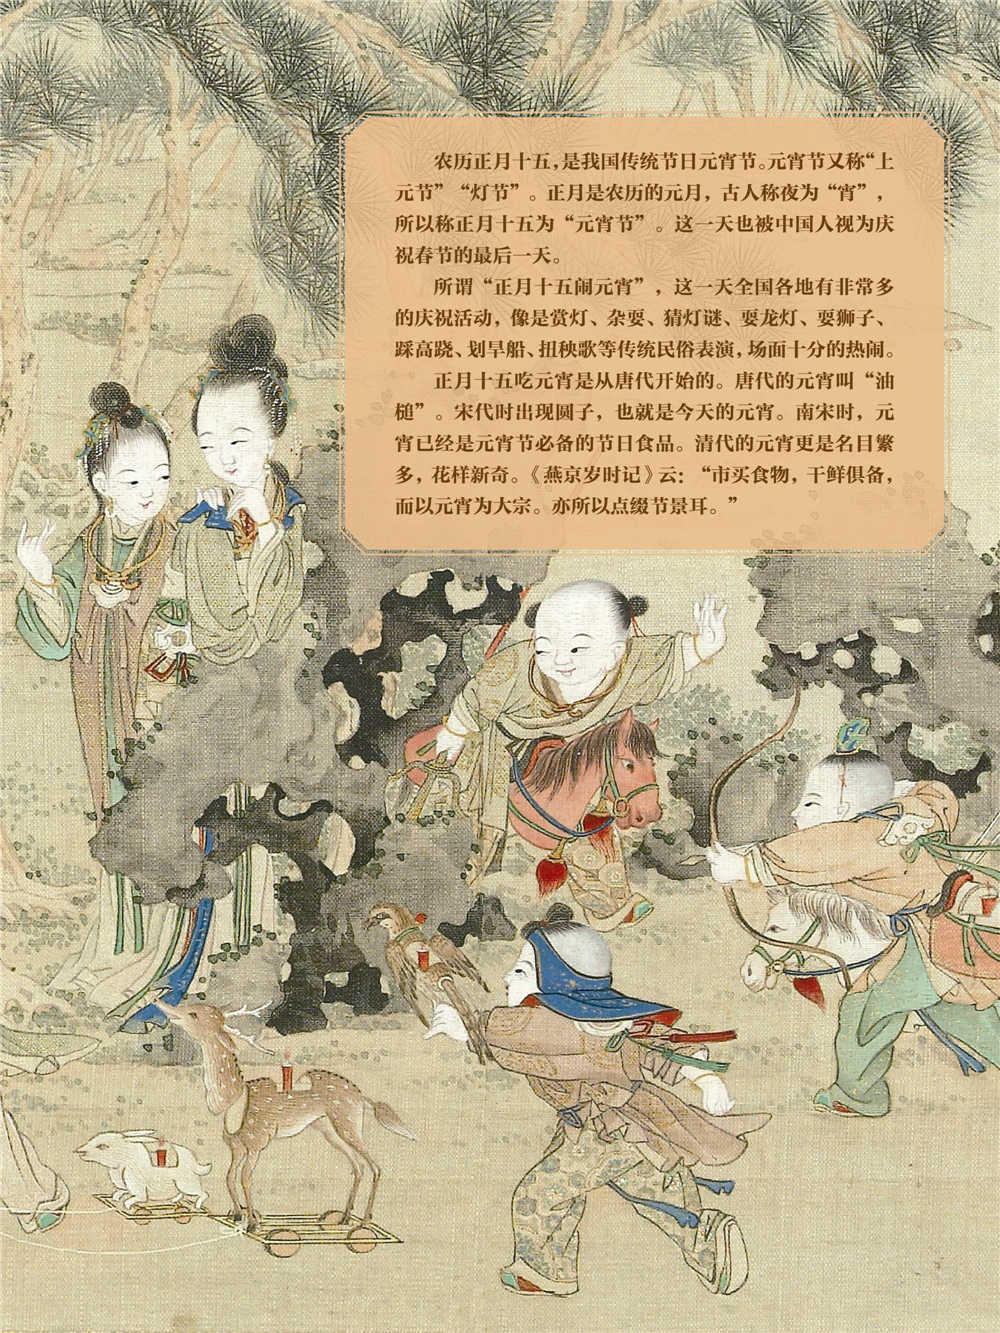 农历正月十五,是我国传统节日元宵节。元宵节又称“上
元节”“灯节”。正月是农历的元月,古人称夜为“宵”,
所以称正月十五为“元宵节”。这一天也被中国人视为庆
祝春节的最后一天。
所谓“正月十五闹元宵”,这一天全国各地有非常多
的庆祝活动,像是赏灯、杂耍、猜灯谜、耍龙灯、耍狮子、
踩高跷、划旱船、扭秧歌等传统民俗表演,场面十分的热闹。
正月十五吃元宵是从唐代开始的。唐代的元宵叫“油
䭔”。宋代时出现圆子,也就是今天的元宵。南宋时,元
宵已经是元宵节必备的节日食品。清代的元宵更是名目繁
多,花样新奇。《燕京岁时记》云:“市买食物,干鲜俱备,
而以元宵为大宗。亦所以点缀节景耳。”